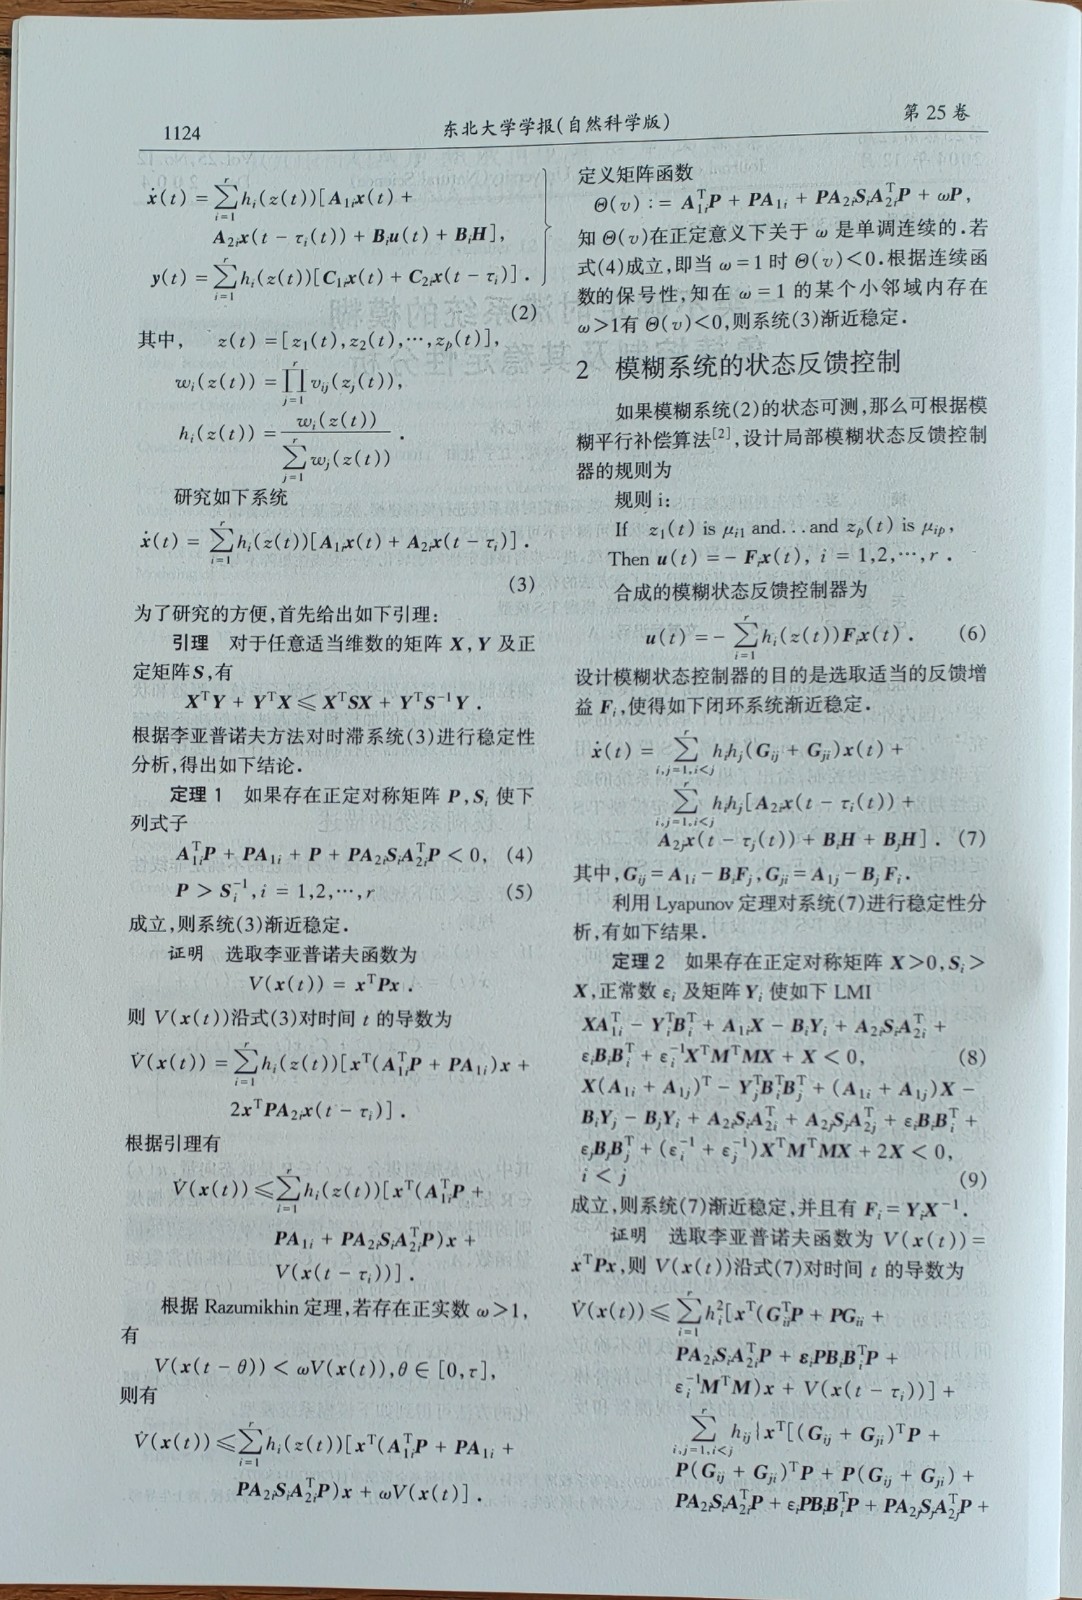 1124
东北大学学报(自然科学版)
第 25 卷
ẋ(t) = ∑_{i=1}^{r} h_i(z(t))[A_{1i}x(t) +
A_{2i}x(t − τ_i(t)) + B_iu(t) + B_iH],
y(t) = ∑_{i=1}^{r} h_i(z(t))[C_{1i}x(t) + C_{2i}x(t − τ_i)].
(2)
其中, z(t) = [z_1(t), z_2(t), ⋯, z_p(t)],
w_i(z(t)) = ∏_{j=1}^{r} v_{ij}(z_j(t)),
h_i(z(t)) = w_i(z(t)) / ∑_{j=1}^{r} w_j(z(t)) .
研究如下系统
ẋ(t) = ∑_{i=1}^{r} h_i(z(t))[A_{1i}x(t) + A_{2i}x(t − τ_i)].
(3)
为了研究的方便,首先给出如下引理:
引理 对于任意适当维数的矩阵 X, Y 及正
定矩阵 S,有
X^TY + Y^TX ⩽ X^TSX + Y^TS^{−1}Y .
根据李亚普诺夫方法对时滞系统(3)进行稳定性
分析,得出如下结论.
定理 1 如果存在正定对称矩阵 P, S_i 使下
列式子
A_{1i}^TP + PA_{1i} + P + PA_{2i}S_iA_{2i}^TP < 0, (4)
P > S_i^{−1}, i = 1,2,⋯,r (5)
成立,则系统(3)渐近稳定.
证明 选取李亚普诺夫函数为
V(x(t)) = x^TPx .
则 V(x(t))沿式(3)对时间 t 的导数为
V̇(x(t)) = ∑_{i=1}^{r} h_i(z(t))[x^T(A_{1i}^TP + PA_{1i})x +
2x^TPA_{2i}x(t − τ_i)] .
根据引理有
V̇(x(t)) ⩽ ∑_{i=1}^{r} h_i(z(t))[x^T(A_{1i}^TP +
PA_{1i} + PA_{2i}S_iA_{2i}^TP)x +
V(x(t − τ_i))] .
根据 Razumikhin 定理,若存在正实数 ω>1,
有
V(x(t − θ)) < ωV(x(t)), θ ∈ [0, τ],
则有
V̇(x(t)) ⩽ ∑_{i=1}^{r} h_i(z(t))[x^T(A_{1i}^TP + PA_{1i} +
PA_{2i}S_iA_{2i}^TP)x + ωV(x(t)] .
定义矩阵函数
Θ(v) := A_{1i}^TP + PA_{1i} + PA_{2i}S_iA_{2i}^TP + ωP,
知 Θ(v)在正定意义下关于 ω 是单调连续的.若
式(4)成立,即当 ω = 1 时 Θ(v)<0.根据连续函
数的保号性,知在 ω = 1 的某个小邻域内存在
ω>1有 Θ(v)<0,则系统(3)渐近稳定.
2 模糊系统的状态反馈控制
如果模糊系统(2)的状态可测,那么可根据模
糊平行补偿算法[2],设计局部模糊状态反馈控制
器的规则为
规则 i:
If z_1(t) is μ_{i1} and...and z_p(t) is μ_{ip},
Then u(t) = − F_ix(t), i = 1,2,⋯,r .
合成的模糊状态反馈控制器为
u(t) = − ∑_{i=1}^{r} h_i(z(t))F_ix(t) . (6)
设计模糊状态控制器的目的是选取适当的反馈增
益 F_i,使得如下闭环系统渐近稳定.
ẋ(t) = ∑_{i,j=1,i<j}^{r} h_ih_j(G_{ij} + G_{ji})x(t) +
∑_{i,j=1,i<j}^{r} h_ih_j[A_{2i}x(t − τ_i(t)) +
A_{2j}x(t − τ_j(t)) + B_iH + B_jH] . (7)
其中, G_{ij} = A_{1i} − B_iF_j, G_{ji} = A_{1j} − B_jF_i.
利用 Lyapunov 定理对系统(7)进行稳定性分
析,有如下结果.
定理 2 如果存在正定对称矩阵 X>0, S_i>
X,正常数 ε_i 及矩阵 Y_i 使如下 LMI
XA_{1i}^T − Y_i^TB_i^T + A_{1i}X − B_iY_i + A_{2i}S_iA_{2i}^T +
ε_iB_iB_i^T + ε_i^{−1}X^TM^TMX + X < 0, (8)
X(A_{1i} + A_{1j})^T − Y_j^TB_i^TB_j^T + (A_{1i} + A_{1j})X −
B_iY_j − B_jY_i + A_{2i}S_iA_{2i}^T + A_{2j}S_jA_{2j}^T + ε_iB_iB_i^T +
ε_jB_jB_j^T + (ε_i^{−1} + ε_j^{−1})X^TM^TMX + 2X < 0,
i < j
(9)
成立,则系统(7)渐近稳定,并且有 F_i = Y_iX^{−1}.
证明 选取李亚普诺夫函数为 V(x(t)) =
x^TPx,则 V(x(t))沿式(7)对时间 t 的导数为
V̇(x(t)) ⩽ ∑_{i=1}^{r} h_i^2[x^T(G_{ii}^TP + PG_{ii} +
PA_{2i}S_iA_{2i}^TP + ε_iPB_iB_i^TP +
ε_i^{−1}M^TM)x + V(x(t − τ_i))] +
∑_{i,j=1,i<j}^{r} h_{ij}{x^T[(G_{ij} + G_{ji})^TP +
P(G_{ij} + G_{ji})^TP + P(G_{ij} + G_{ji}) +
PA_{2i}S_iA_{2i}^TP + ε_iPB_iB_i^TP + PA_{2j}S_jA_{2j}^TP +